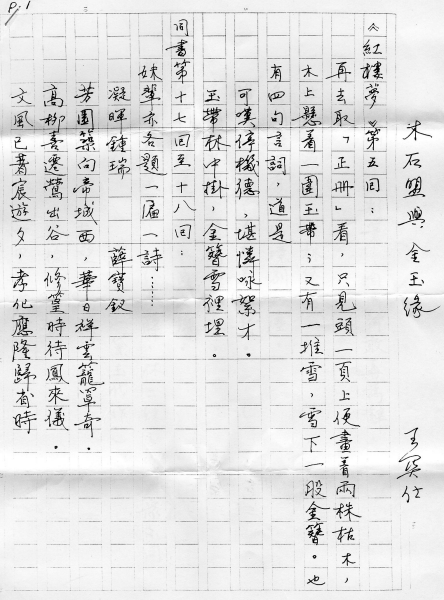 P.1
木石盟與金玉緣
王奕仕
《紅樓夢》第五回：
再去取「正冊」看，只見頭一頁上便畫着兩株枯木，
木上懸着一圍玉帶；又有一堆雪，雪下一股金簪。也
有四句言詞，道是
可嘆停機德，堪憐咏絮才。
玉帶林中掛，金簪雪裡埋。
同書第十七回至十八回：
妹輩亦各題一匾一詩……
凝暉鍾瑞　薛寶釵
芳園築向帝城西，華日祥雲籠罩奇。
高柳喜遷鶯出谷，修篁時待鳳來儀。
文風已著宸遊夕，孝化應隆歸省時